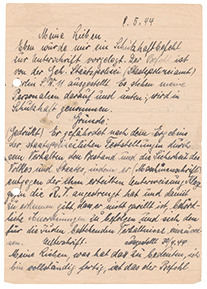 8.5.44
Meine Lieben
Eben wurde mir ein Schutzhaftbefehl
zur Unterschrift vorgelegt. Der Befehl ist
von der Geh. Staatspolizei (Staatspolizeiamt)
ausgestellt. Es stehen meine
Personalien darauf und unten, wird in
Schutzhaft genommen.
Gründe:
(Gedruckt) Er gefährdet nach dem Ergebnis
der staatspolizeilichen Feststellungen durch
sein Verhalten den Bestand und die Sicherheit des
Volkes und Staates, indem er (Maschinenschrift)
entgegen der ihm erteilten
angestrengt hat und damit
zu erkennen gibt, dass er nicht gewillt ist, behörd-
liche Anordnungen zu befolgen und sich den
für die Juden bestehenden Verhältnisse
Unterschrift.
Meine Lieben, was hat das zu bedeuten, ich
bin vollständig fertig, ist das der Befehl